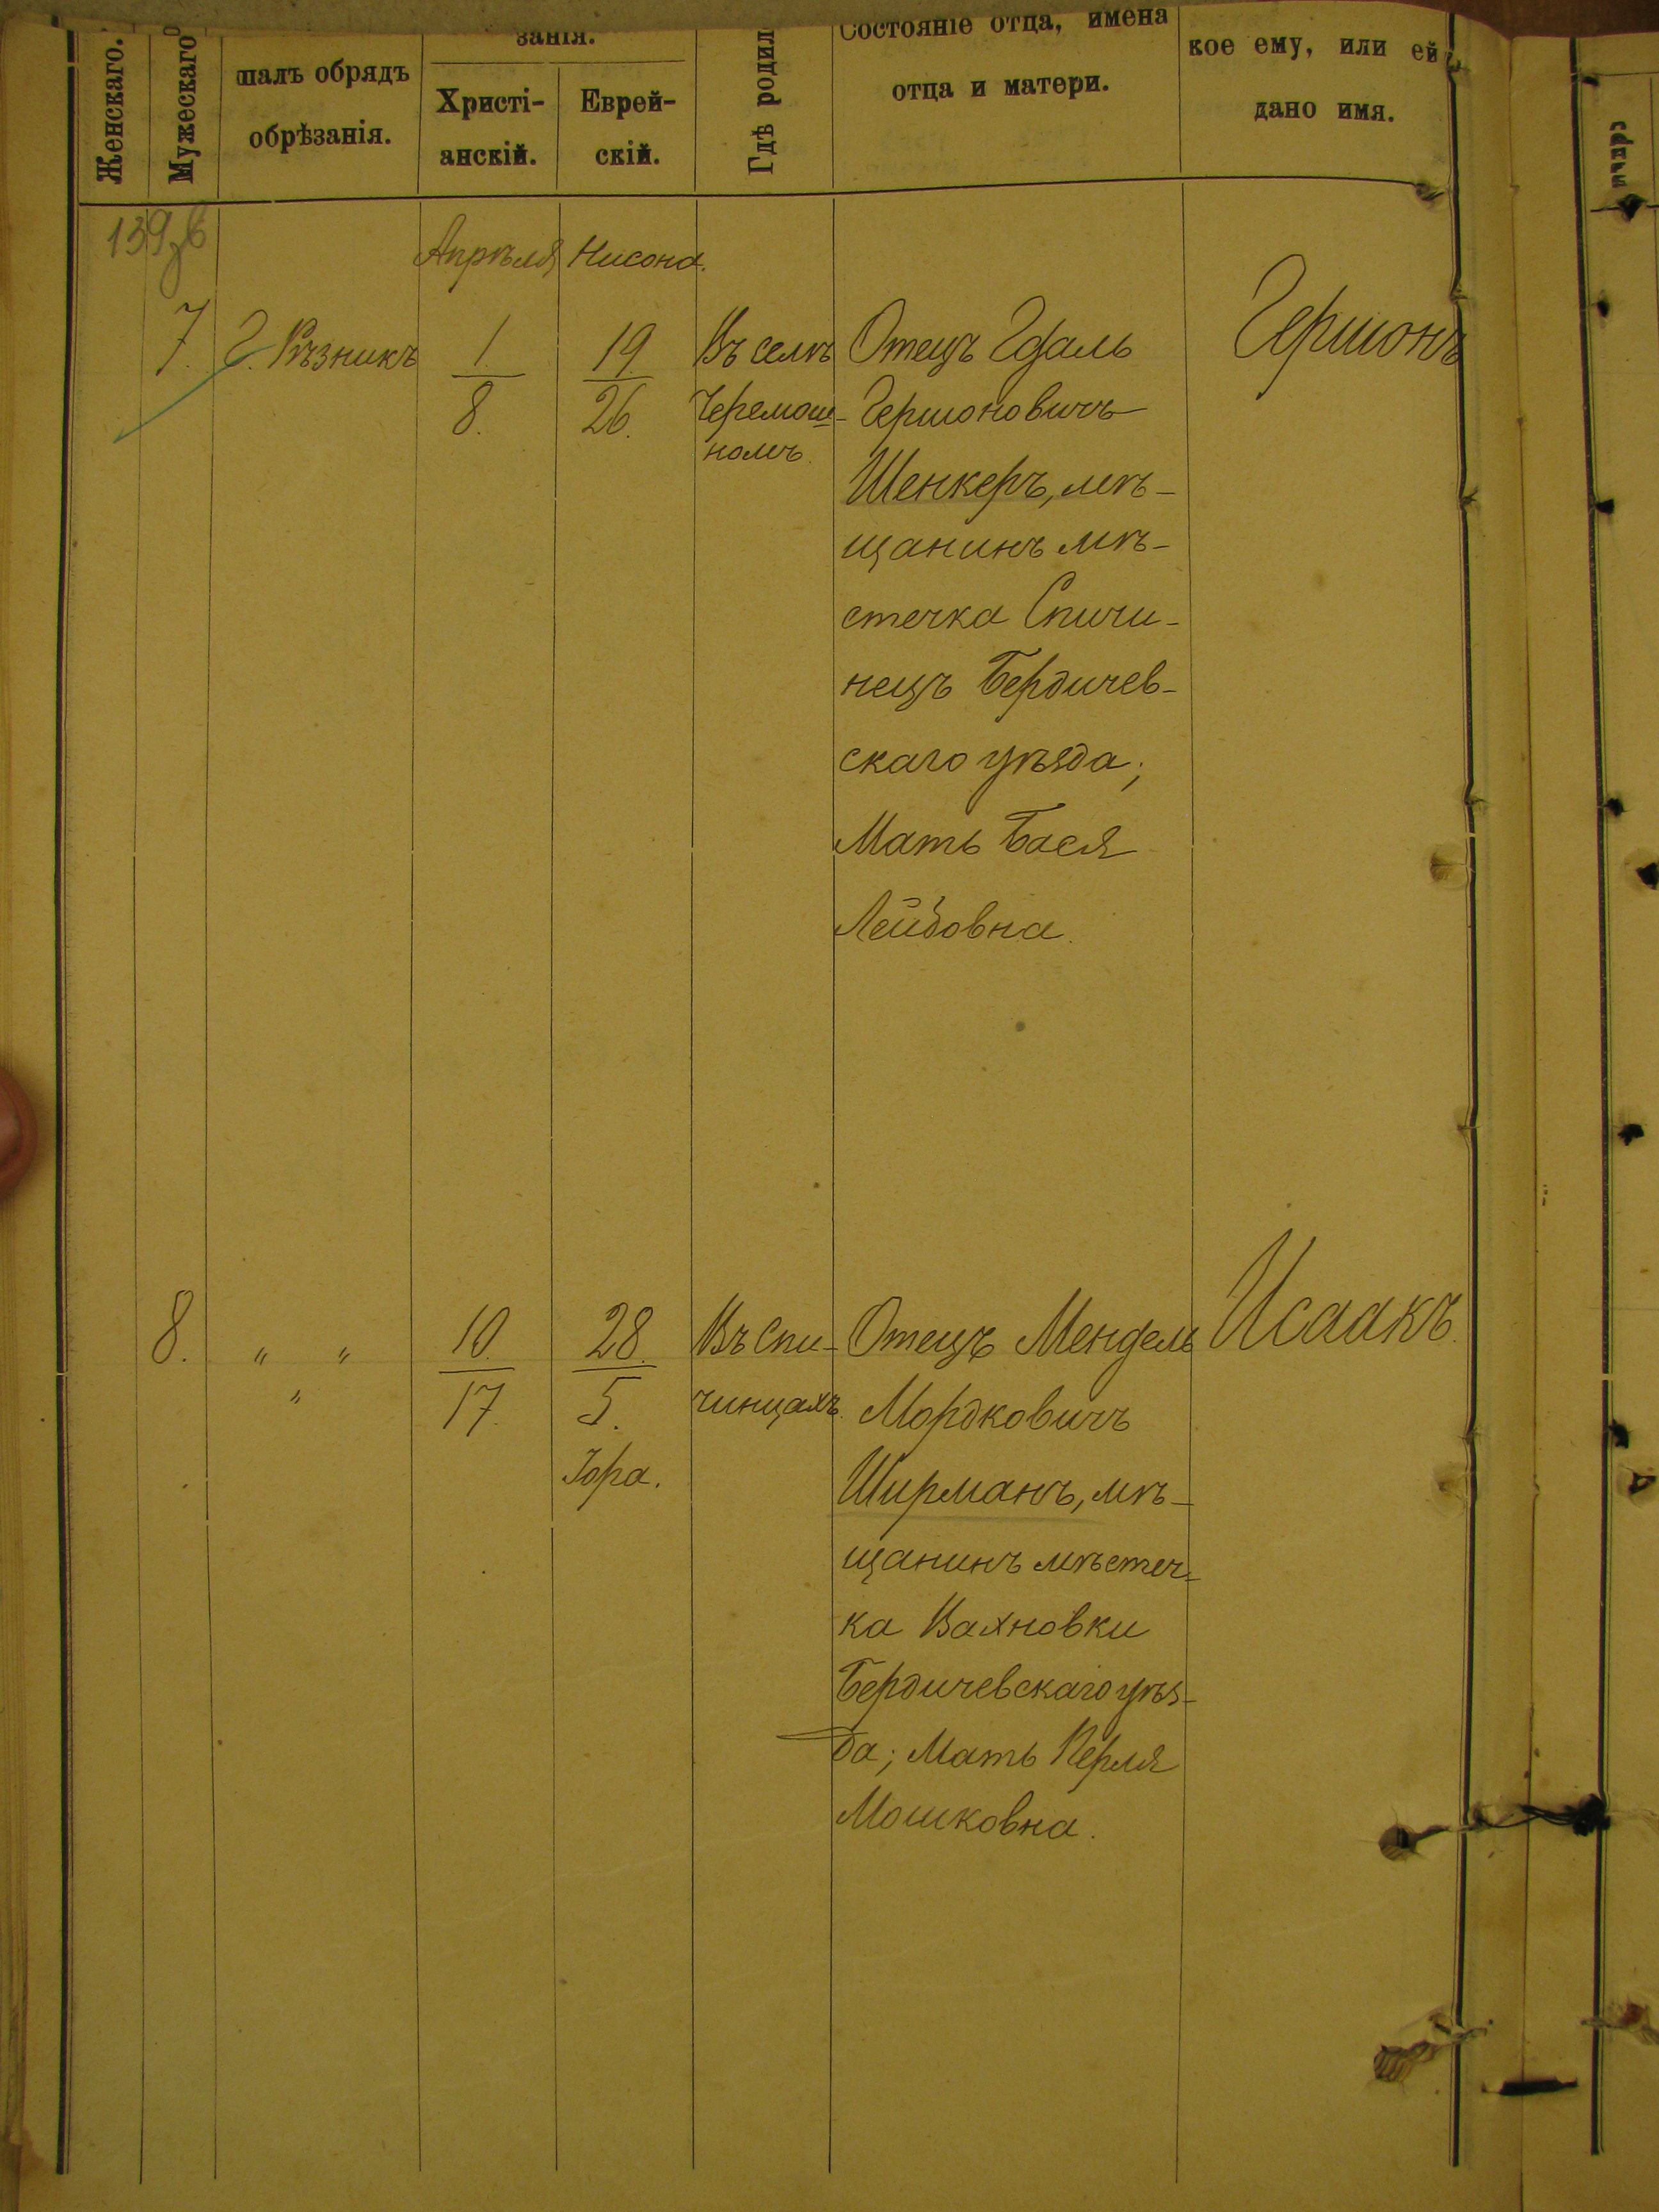 Женскаго.
Мужескаго
шалъ обрядъ
обрѣзанія.
занія.
Христі-
анскій.
Еврей-
скій.
Гдѣ родил
Состояніе отца, имена
отца и матери.
кое ему, или ей
дано имя.
Апрѣля
Нисона.
7.
Рѣзникъ
1.
8.
19.
26.
Въ селѣ
Черемош-
номъ.
Отецъ Гдаль
Гершоновичъ
Шенкеръ, мѣ-
щанинъ мѣ-
стечка Спичи-
нецъ Бердичев-
скаго уѣзда;
Мать Бася
Лейбовна.
Гершонъ
8.
" "
"
10.
17.
28.
5.
Іора.
Въ Спи-
чинцахъ.
Отецъ Мендель
Мордковичъ
Ширманъ, мѣ-
щанинъ мѣстеч-
ка Вахновки
Бердичевскаго уѣз-
да; Мать Перля
Мошковна.
Исаакъ.